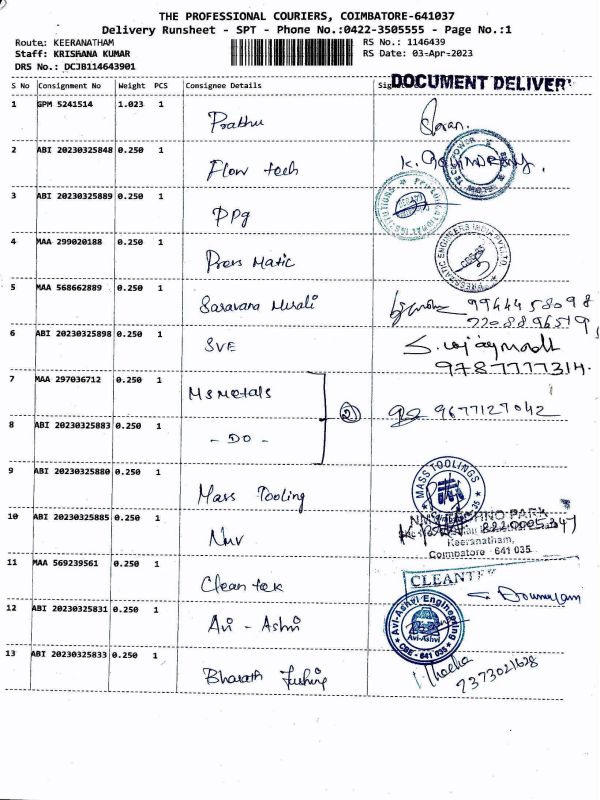 THE PROFESSIONAL COURIERS, COIMBATORE-641037
Delivery Runsheet - SPT - Phone No.:0422-3505555 - Page No.:1
Route: KEERANATHAM RS No.: 1146439
Staff: KRISHANA KUMAR RS Date: 03-Apr-2023
DRS No.: DCJB114643901
DOCUMENT DELIVER
S No Consignment No Weight PCS Consignee Details
1 GPM 5241514 1.023 1
Prabhu
2 ABI 20230325848 0.250 1
Flow tech
3 ABI 20230325889 0.250 1
PPg
4 MAA 299020188 0.250 1
Press Matic
PRESSMATIC ENGINEERS INDIA PVT. LTD.
5 MAA 568662889 0.250 1
Saravana Murali 9944458098
6 ABI 20230325898 0.250 1
SVE
9787777314.
7 MAA 297036712 0.250 1
MS Metals
2 9677127042
8 ABI 20230325883 0.250 1
- DO -
9 ABI 20230325880 0.250 1
Mass Tooling
MASS TOOLINGS
10 ABI 20230325885 0.250 1
PARK
Keeranatham,
Coimbatore - 641 035
11 MAA 569239561 0.250 1
Clean tek
CLEANTE
12 ABI 20230325831 0.250 1
Avi - Ashvi
Avi-Ashvi Engineering
Avi-Ashvi
CBE - 641 035
13 ABI 20230325833 0.250 1
Bharath
7373021628